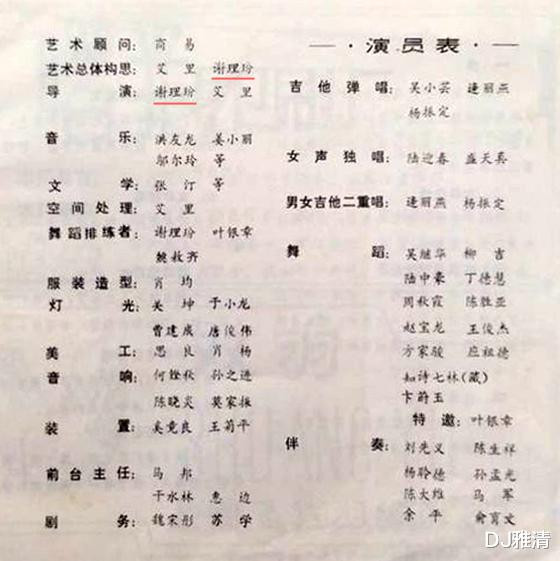 艺术顾问：商易
艺术总体构思：艾里 谢理玢
导演：谢理玢 艾里
音乐：洪友龙 姜小丽
邬尔玲 等
文学：张汀 等
空间处理：艾里
舞蹈排练者：谢理玢 叶银章
魏敖齐
服装造型：肖均
灯光：吴坤 于小龙
曹建成 唐俊伟
美工：思良 肖杨
音响：何铨秋 孙之进
陈晓炎 莫家振
装置：奚竟良 王菊平
前台主任：马邦
干水林 惠边
剧务：魏宋彤 苏学
—·演员表·—
吉他弹唱：吴小芸 逄丽燕
杨振定
女声独唱：陆迎春 盛天真
男女吉他二重唱：逄丽燕 杨振定
舞蹈：吴继华 柳吉
陆中豪 丁德慧
周秋霞 陈胜亚
赵宝龙 王俊杰
方家骏 应祖德
知诗七林(藏)
卞蔚玉
特邀：叶银章
伴奏：刘先义 陈生祥
杨聆德 孙孟光
陈大维 马军
余平 俞育文
DJ雅清